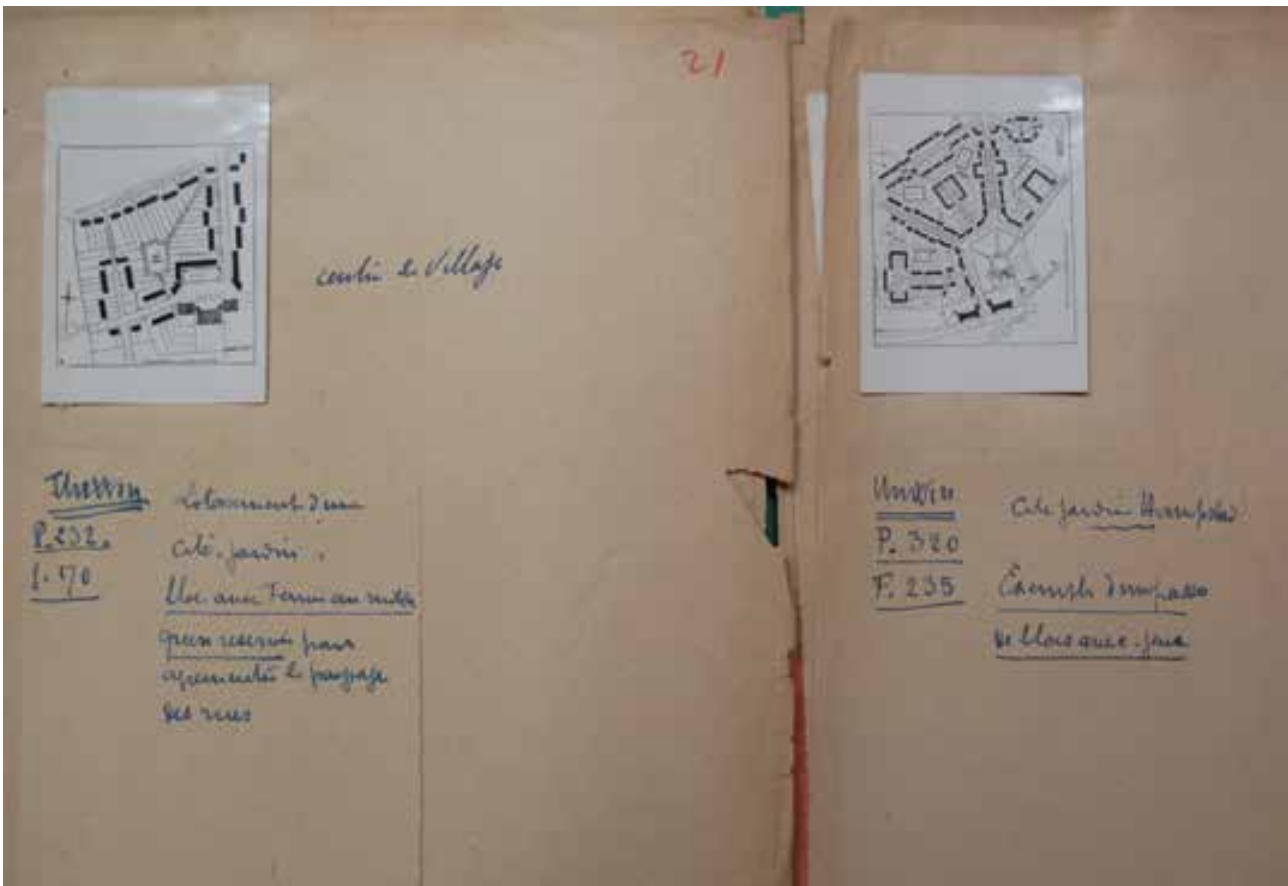 21
centre de Village
P. 232.
f. 170
Lotissement d'une
cité-jardin.
bloc avec Tennis au milieu
green reservé pour
agrementer le paysage
des rues
Unwin
P. 320
F. 235
Cité jardin Hampstead
Exemple d'impasse
de blocs avec jeux